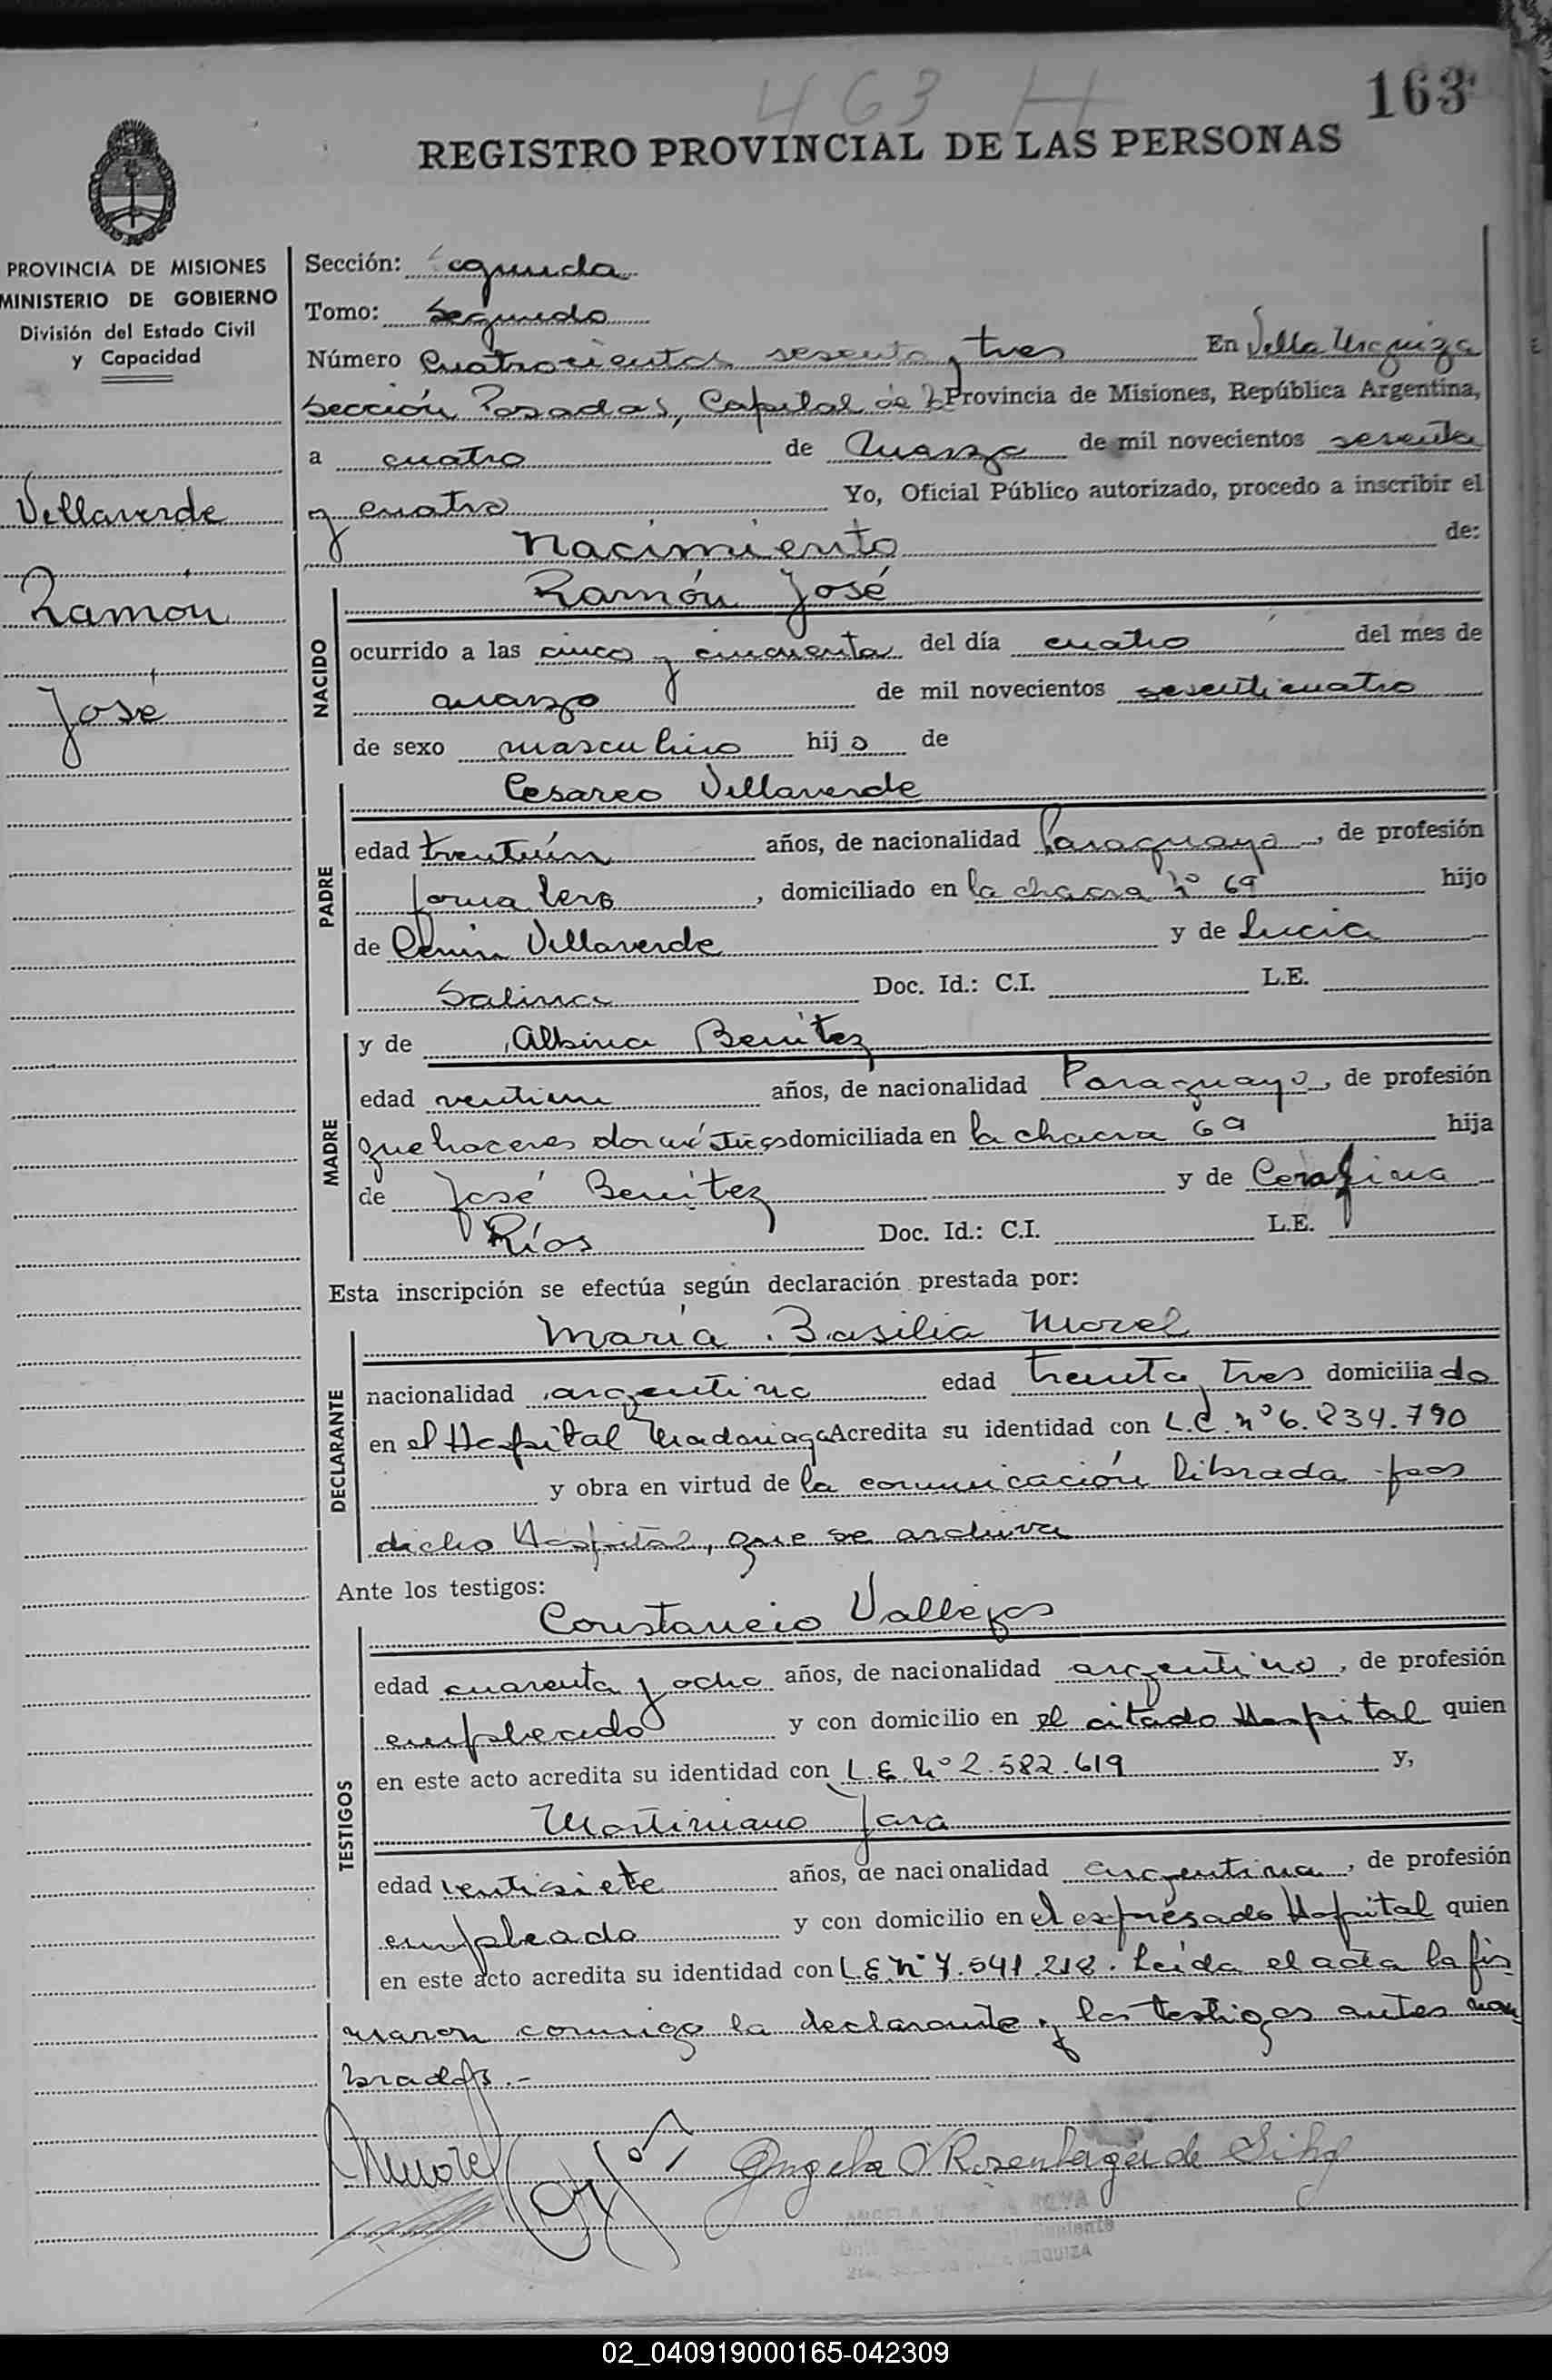 463 H
163
REGISTRO PROVINCIAL DE LAS PERSONAS
PROVINCIA DE MISIONES
MINISTERIO DE GOBIERNO
División del Estado Civil
y Capacidad
Villaverde
Ramón
José
Sección: Segunda
Tomo: Segundo
Número Cuatrocientos sesenta y tres En Villa Urquiza
Sección Posadas, Capital de la Provincia de Misiones, República Argentina,
a cuatro de Marzo de mil novecientos sesenta
y cuatro Yo, Oficial Público autorizado, procedo a inscribir el
nacimiento de:
Ramón José
NACIDO
ocurrido a las cinco y cincuenta del día cuatro del mes de
marzo de mil novecientos sesenticuatro
de sexo masculino hijo de
Cesareo Villaverde
PADRE
edad trentiún años, de nacionalidad Paraguaya, de profesión
jornalero, domiciliado en la chacra nº 69 hijo
de Villaverde y de Lucia
Salina Doc. Id.: C.I. L.E.
MADRE
y de Albina Benítez
edad años, de nacionalidad Paraguaya, de profesión
quehaceres domésticos domiciliada en la chacra 69 hija
de José Benítez y de Cerafina
Ríos Doc. Id.: C.I. L.E.
Esta inscripción se efectúa según declaración prestada por:
María Basilia Morel
DECLARANTE
nacionalidad argentina edad trenta y tres domiciliado
en el Hospital Madariaga Acredita su identidad con L.C. nº 6.834.790
y obra en virtud de la comunicación librada por
dicho Hospital, que se archiva
Ante los testigos:
Constancio Vallejos
TESTIGOS
edad cuarenta y ocho años, de nacionalidad argentino, de profesión
empleado y con domicilio en el citado Hospital quien
en este acto acredita su identidad con L.E. Nº 2.582.619 y,
Martiniano Jara
edad ventisiete años, de nacionalidad argentina, de profesión
empleado y con domicilio en el expresado Hospital quien
en este acto acredita su identidad con L.E. Nº 7.541.218. Leída el acta la fir
maron conmigo la declarante y los testigos antes nom
brados.-
MMorel
Angela V Rosenberger de Silva
URQUIZA
02_040919000165-042309